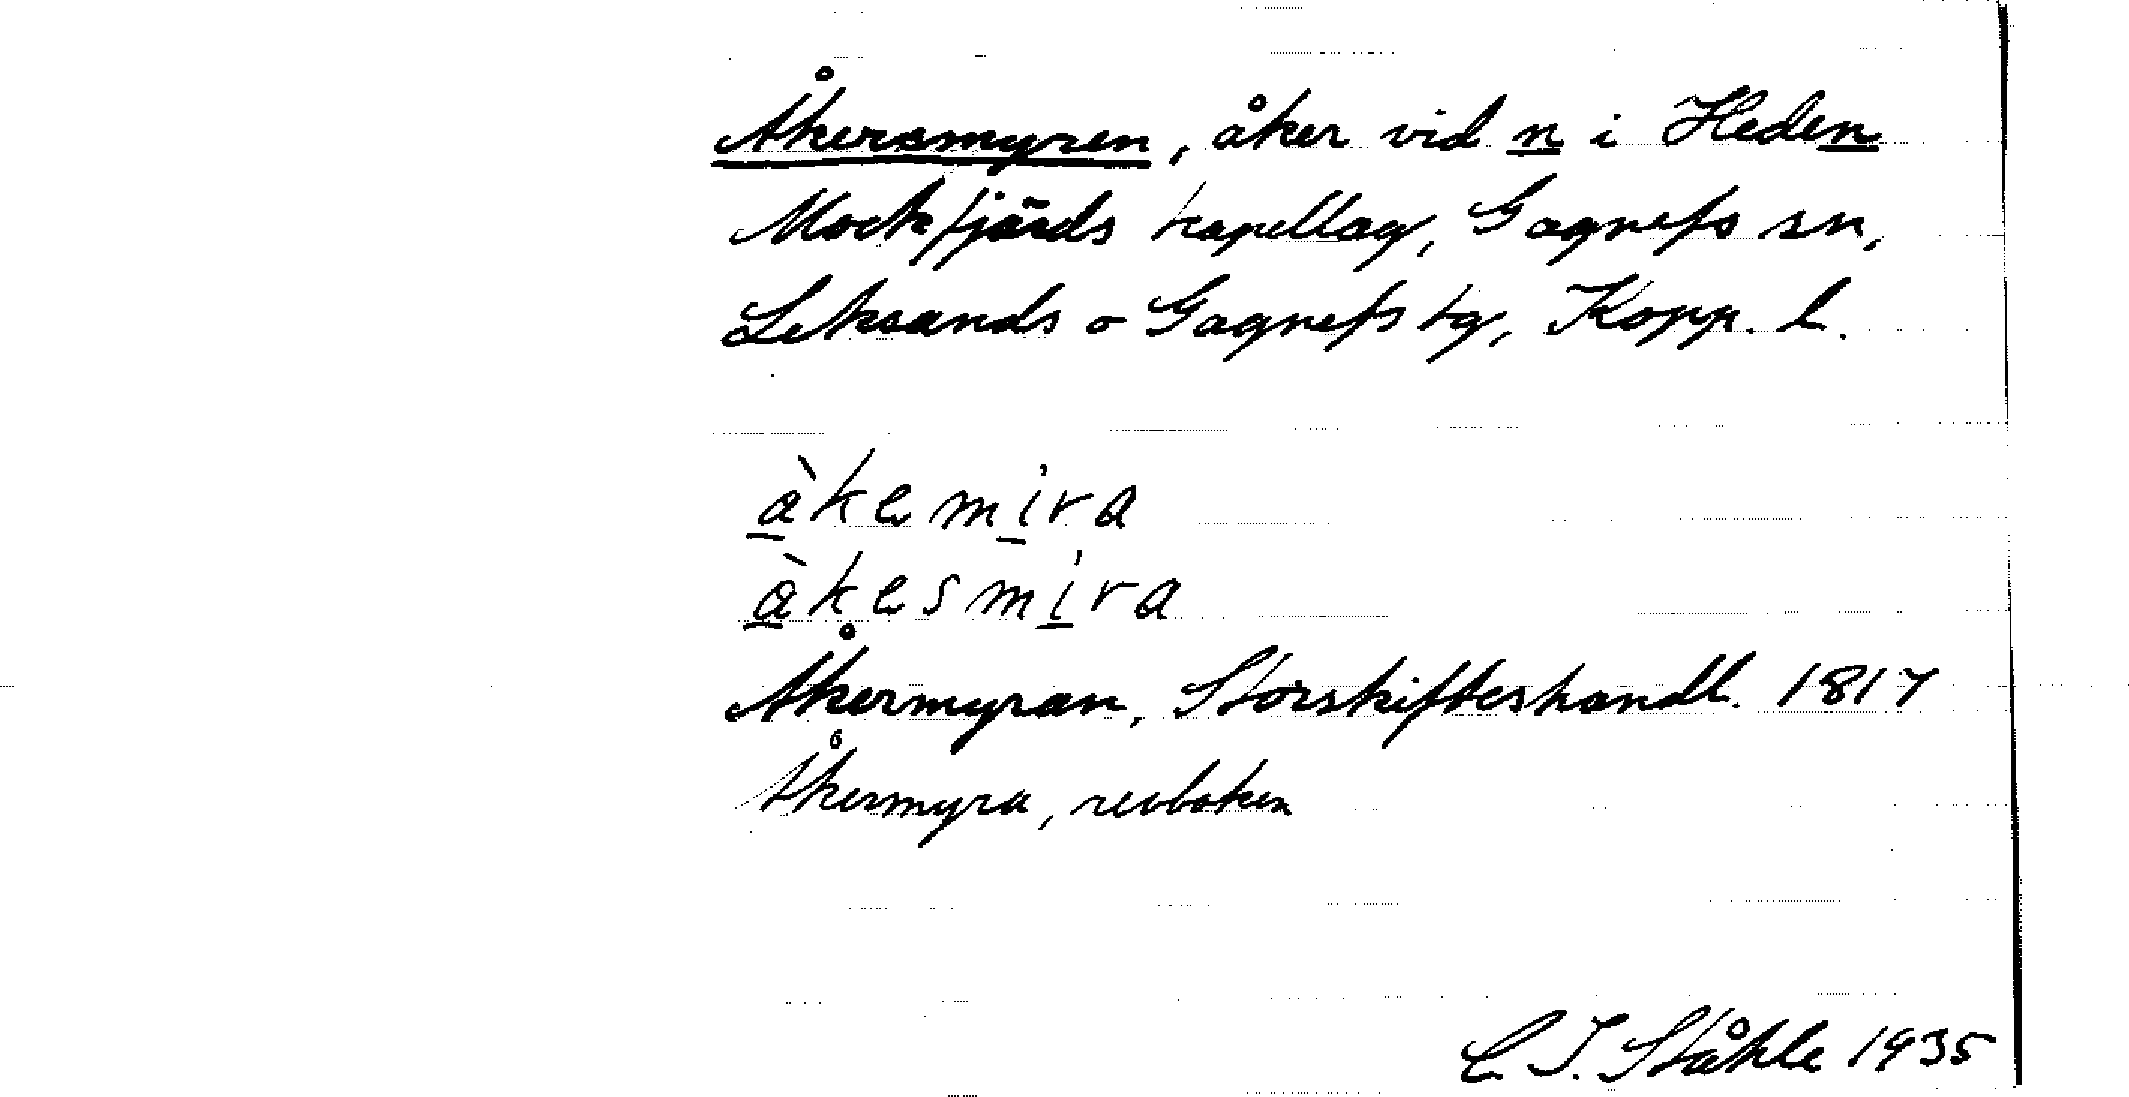 Åkersmyren, åker vid n i Heden
Mockfjärds kapellag, Gagnefs sn,
Leksands o Gagnefs tg, Kopp. l.
àkemira
àkesmira
Åkermyran, Storskifteshandl. 1817
Åkermyra, revboken
C I. Ståhle 1935